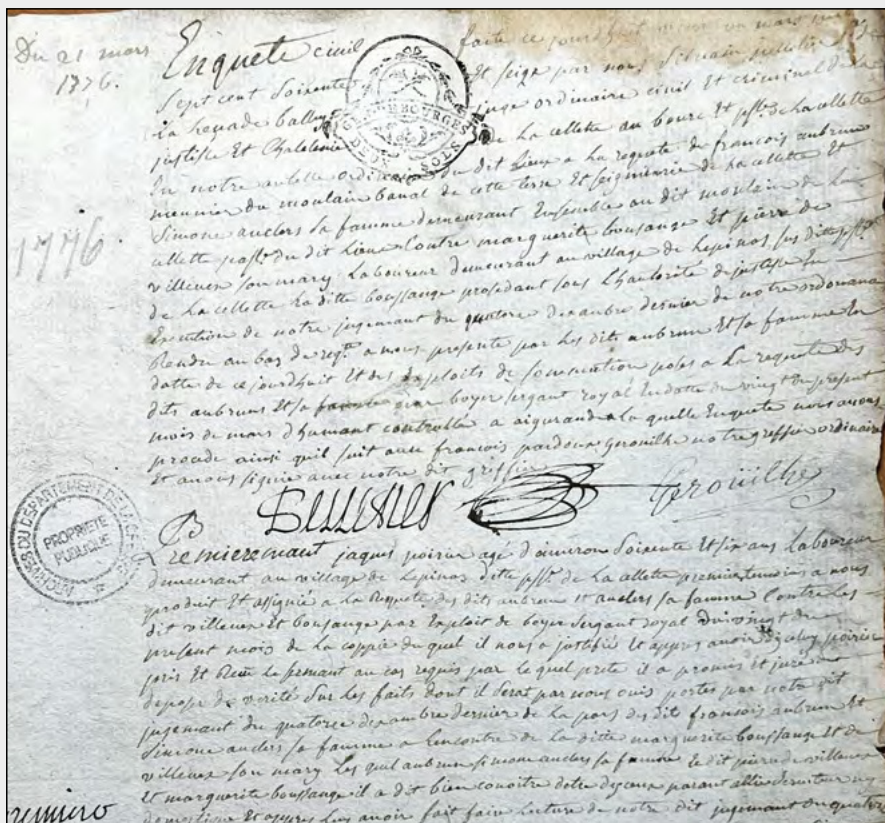 Du 21 mars
1776.
Enquete civil faite ce jourdhuit vingt un mars mil
Sept cent Soixente Et seize par nous Silvain pelletier
La henade bally juge ordinaire civil Et criminel de la
justisse Et Chatelenie de La cellette au bourc Et psse. de La cellette
En notre autelle ordinere du dit Lieux a La requete de francois aubrun
meunier du moulain banal de cette terre Et seignierie de La cellette Et
Simone anclers sa famme demeurant Ensemble au dit moulain de La
cellette passe. du dit Lieu Contre marguerite boussange Et pierre de
villeneux son mary Laboureur demeurant au village de Lepinas sus ditte psse.
de La cellette La ditte boussange prosedant sous L'hautorité de justisse En
Execution de notre jugemant du quatore dexanbre dernier de notre ordonnance
Rendu au bas de reqte. a nous presenté par Les dits aubrun Et sa famme En
datte de ce jourdhuit Et des Exploits de sommation poses a La requete des
dits aubruns Et sa famme par boyer sergant royal En datte du vingt du present
mois de mars d'humant controllé a aigurande La quelle Enquete nous avons
procedé ainsi quil suit avec francois pardoux Gerouilhe notre greffier ordinaire
Et avons signié avec notre dit greffier
Gerouilhe
1776
ARCHIVES DU DÉPARTEMENT DE LA CREUSE
PROPRIÉTÉ PUBLIQUE
GEN. DE BOURGES
DEUX SOLS
Premieremant jaques poirier agé d'anviron Soixente Et six ans Laboureur
demeurant au village de Lepinas ditte psse. de La cellette premier temoins a nous
produit Et assignié a La Requete des dits aubrun Et anclers sa famme Contre Les
dit villeneux Et boussange par Exploit de boyer Sergant royal du vingt du
present mois de La coppie du quel il nous a justifié Et appres avoir dizeluy poirier
pris Et Recu Le sermant au cas requis par Le quel preté il a promis Et juré
deposer de verité Sur Les faits dont il Serat par nous ouis portes par notre dit
jugemant du quatorze dexambre dernier de La part des dit francois aubrun Et
Simone anclers sa famme a Lencontre de La ditte marguerite boussange Et de
villeneux son mary Les quel aubrun simone anclers sa famme Le dit pierre de villeneux
Et marguerite boussange il a dit bien conoitre detre disceux parant allié serviteur ny
domestique Et appres Luy avoir fait faire Lecture de notre dit jugemant du quatorze
premiero